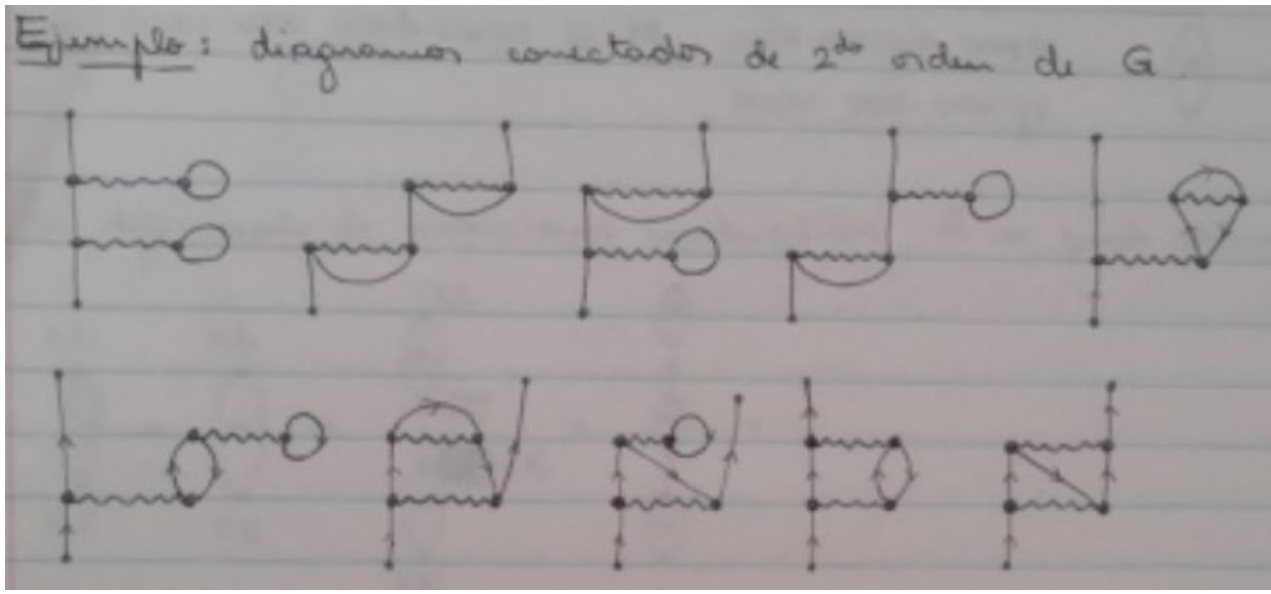 Ejemplo: diagramas conectados de 2do orden de G